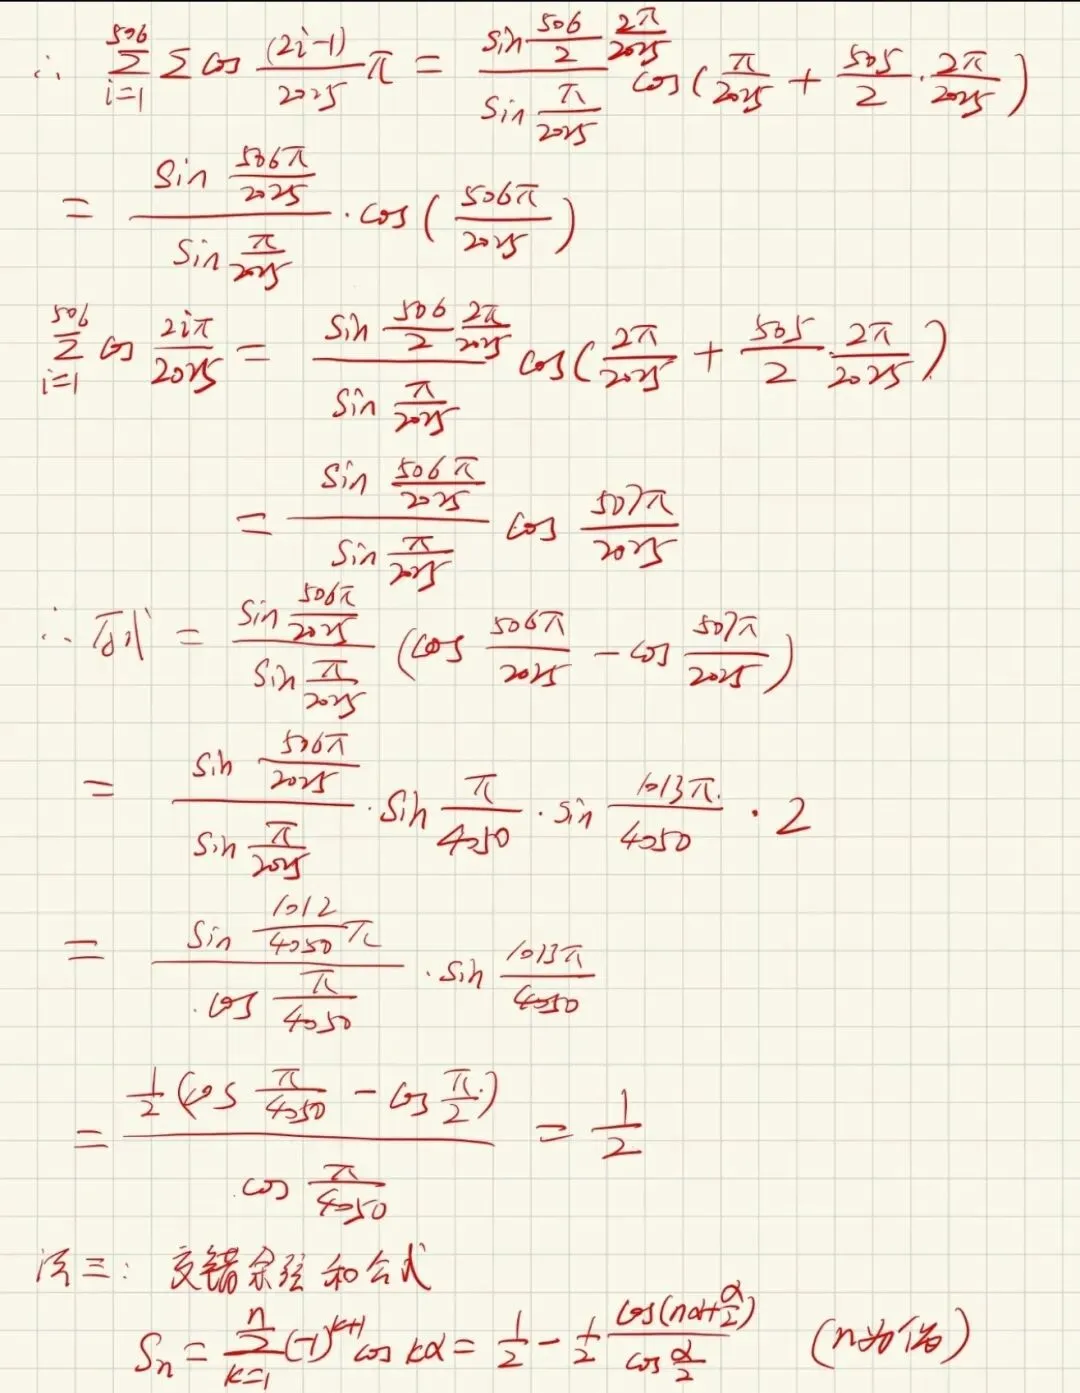 ∴ ∑_{i=1}^{506} ∑ cos (2i-1)/2025 π = (sin 506/2 2π/2025)/(sin π/2025) cos(π/2025 + 505/2 · 2π/2025)
= (sin 506π/2025)/(sin π/2025) · cos(506π/2025)
∑_{i=1}^{506} cos 2iπ/2025 = (sin 506/2 2π/2025)/(sin π/2025) cos(2π/2025 + 505/2 · 2π/2025)
= (sin 506π/2025)/(sin π/2025) cos 507π/2025
∴ 原式 = (sin 506π/2025)/(sin π/2025) (cos 506π/2025 - cos 507π/2025)
= (sin 506π/2025)/(sin π/2025) · sin π/4050 · sin 1013π/4050 · 2
= (sin 1012/4050 π)/(cos π/4050) · sin 1013π/4050
= (1/2 (cos π/4050 - cos π/2))/(cos π/4050) = 1/2
法三: 交错余弦和公式
S_n = ∑_{k=1}^{n} (-1)^{k+1} cos kα = 1/2 - 1/2 cos(nα+α/2)/cos α/2 (n为偶)